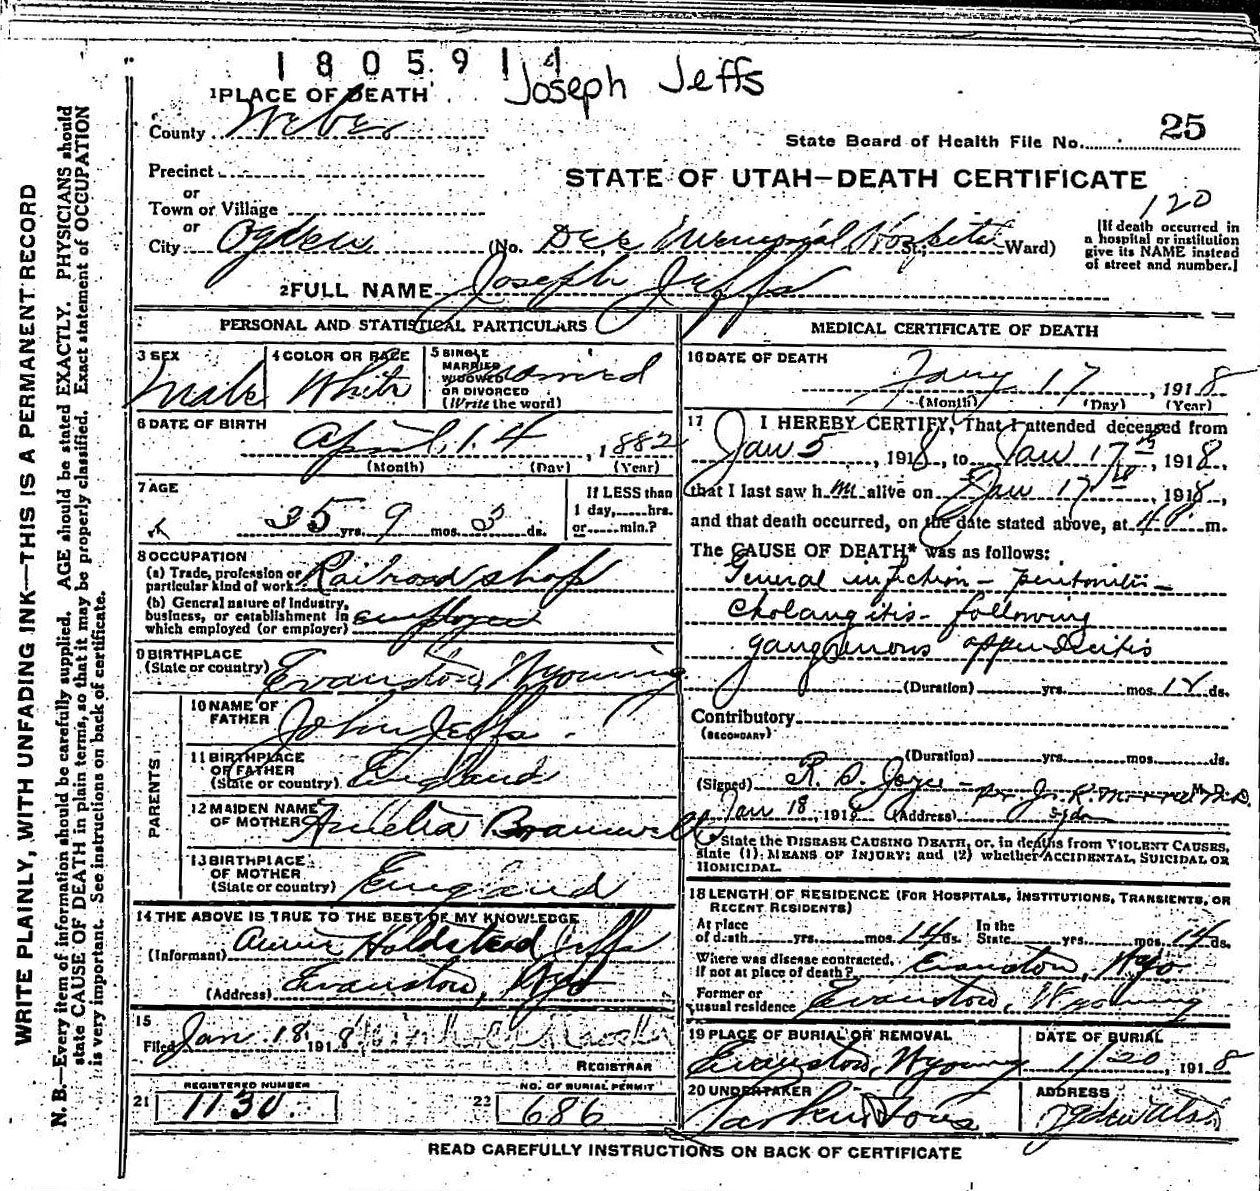 1805914
Joseph Jeffs
1 PLACE OF DEATH
County Weber
State Board of Health File No. 25
Precinct
STATE OF UTAH—DEATH CERTIFICATE
or
Town or Village
120
or
City Ogden (No. Dee Memorial Hospital St.; Ward)
[If death occurred in
a hospital or institution
give its NAME instead
of street and number.]
2 FULL NAME Joseph Jeffs
PERSONAL AND STATISTICAL PARTICULARS
3 SEX
Male
4 COLOR OR RACE
White
5 SINGLE
MARRIED
WIDOWED
OR DIVORCED
(Write the word)
Married
6 DATE OF BIRTH
April, 14, 1882
(Month) (Day) (Year)
7 AGE
35 yrs. 9 mos. 3 ds.
If LESS than
1 day,.....hrs.
or.....min.?
8 OCCUPATION
(a) Trade, profession or
particular kind of work Railroad shop
(b) General nature of Industry,
business, or establishment in
which employed (or employer) employee
9 BIRTHPLACE
(State or country) Evanston, Wyoming
PARENTS
10 NAME OF
FATHER John Jeffs.
11 BIRTHPLACE
OF FATHER
(State or country) England
12 MAIDEN NAME
OF MOTHER Amelia Bramwell
13 BIRTHPLACE
OF MOTHER
(State or country) England
14 THE ABOVE IS TRUE TO THE BEST OF MY KNOWLEDGE
(Informant) Annie Holdstead Jeffs
(Address) Evanston, Wyo
15
Filed Jan. 18 1918
REGISTRAR
REGISTERED NUMBER
21 1130.
NO. OF BURIAL PERMIT
22 686
MEDICAL CERTIFICATE OF DEATH
16 DATE OF DEATH
Jany 17, 1918
(Month) (Day) (Year)
17 I HEREBY CERTIFY, That I attended deceased from
Jan 5, 1918, to Jan 17th, 1918,
that I last saw him alive on Jan 17th, 1918,
and that death occurred, on the date stated above, at m.
The CAUSE OF DEATH* was as follows:
General infection - peritonitis -
Cholangitis - following
gangrenous appendicitis
(Duration) yrs. mos. ds.
Contributory
(SECONDARY)
(Duration) yrs. mos. ds.
(Signed) R. S. Joyce - per M. D.
Jan 18, 1918 (Address) Ogden
*State the DISEASE CAUSING DEATH, or, in deaths from VIOLENT CAUSES,
state (1) MEANS OF INJURY; and (2) whether ACCIDENTAL, SUICIDAL OR
HOMICIDAL.
18 LENGTH OF RESIDENCE (FOR HOSPITALS, INSTITUTIONS, TRANSIENTS, OR
RECENT RESIDENTS)
At place
of death yrs. mos. 14 ds. In the
State yrs. mos. 14 ds.
Where was disease contracted,
if not at place of death? Evanston, Wyo
Former or
usual residence Evanston, Wyoming
19 PLACE OF BURIAL OR REMOVAL
Evanston, Wyoming
DATE OF BURIAL
1/20 1918
20 UNDERTAKER
Larkin & Sons
ADDRESS
Ogden Utah
READ CAREFULLY INSTRUCTIONS ON BACK OF CERTIFICATE
WRITE PLAINLY, WITH UNFADING INK—THIS IS A PERMANENT RECORD
N. B.—Every item of information should be carefully supplied. AGE should be stated EXACTLY. PHYSICIANS should
state CAUSE OF DEATH in plain terms, so that it may be properly classified. Exact statement of OCCUPATION
is very important. See instructions on back of certificate.